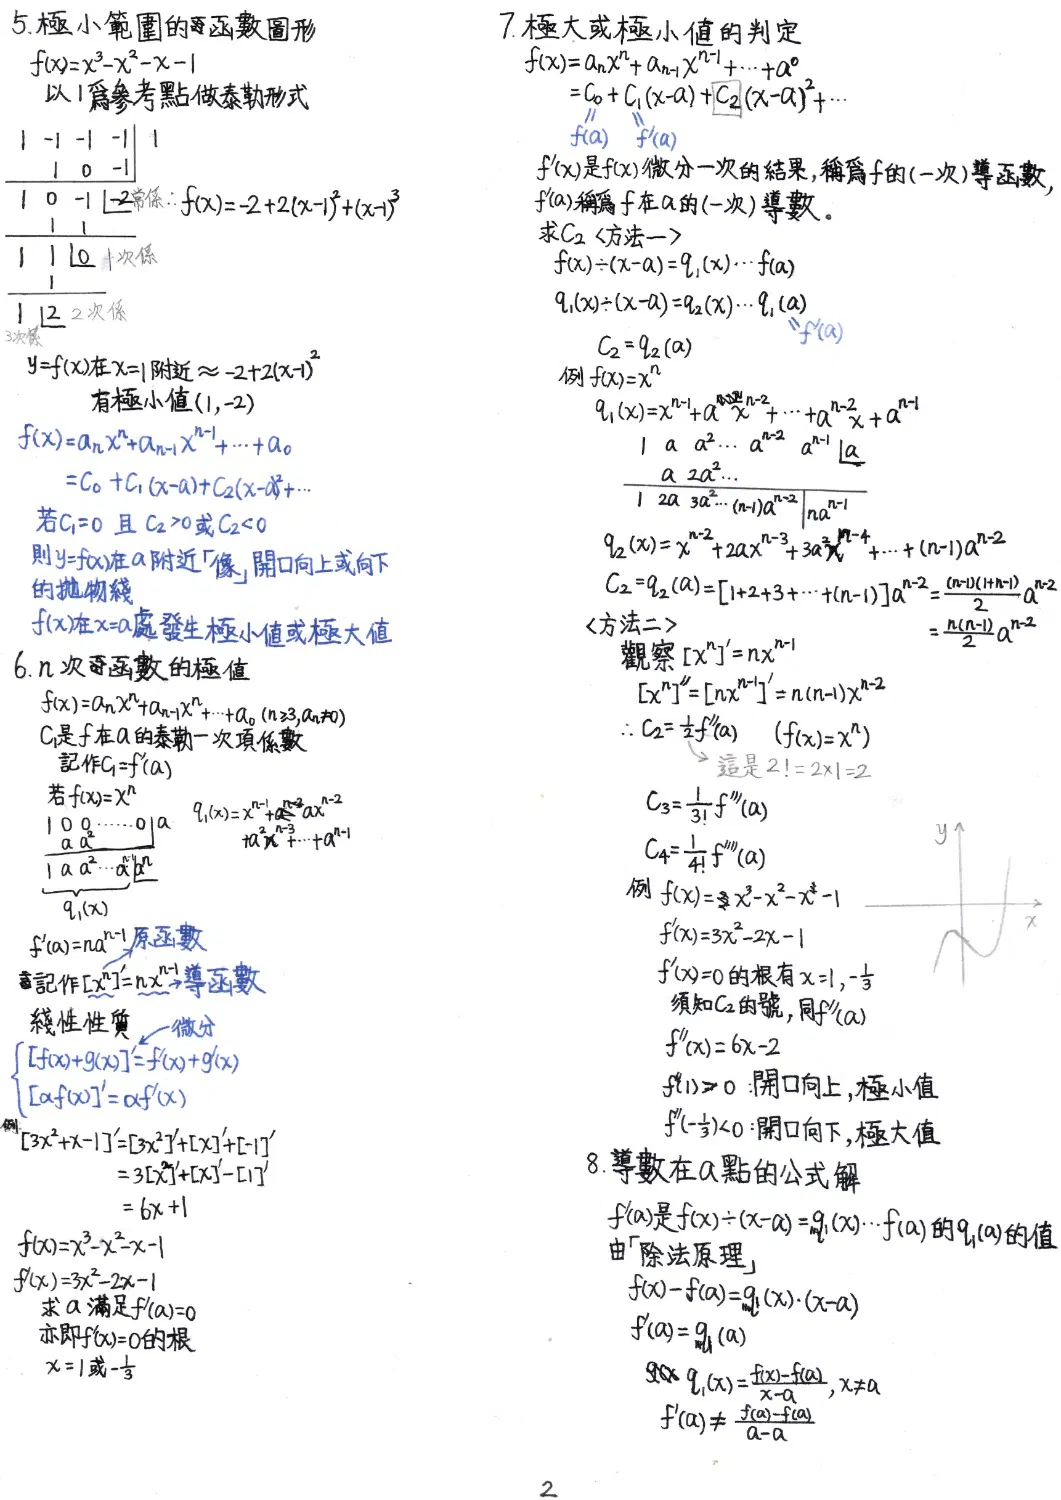 5.極小範圍的函數圖形
f(x)=x³-x²-x-1
以1為參考點做泰勒形式
1 -1 -1 -1 | 1
1 0 -1
1 0 -1 |-2 常係 ∴ f(x)=-2+2(x-1)²+(x-1)³
1 1
1 1 |0 1次係
1
1 |2 2次係
3次係
y=f(x)在x=1附近≈-2+2(x-1)²
有極小值(1,-2)
f(x)=aₙxⁿ+aₙ₋₁xⁿ⁻¹+…+a₀
=C₀+C₁(x-a)+C₂(x-a)²+…
若C₁=0 且 C₂>0或C₂<0
則y=f(x)在a附近「像」開口向上或向下
的拋物綫
f(x)在x=a處發生極小值或極大值
6.n次函數的極值
f(x)=aₙxⁿ+aₙ₋₁xⁿ+…+a₀ (n≥3,aₙ≠0)
C₁是f在a的泰勒一次項係數
記作C₁=f'(a)
若f(x)=xⁿ
1 0 0 ……0 | a
a a²
1 a a²…aⁿ⁻¹ |aⁿ
q₁(x)
q₁(x)=xⁿ⁻¹+axⁿ⁻²
+a²xⁿ⁻³+…+aⁿ⁻¹
f'(a)=naⁿ⁻¹ 原函數
記作[xⁿ]'=nxⁿ⁻¹→導函數
綫性性質 微分
[f(x)+g(x)]'=f'(x)+g'(x)
[αf(x)]'=αf'(x)
例 [3x²+x-1]'=[3x²]'+[x]'+[-1]'
=3[x²]'+[x]'-[1]'
=6x+1
f(x)=x³-x²-x-1
f'(x)=3x²-2x-1
求a滿足f'(a)=0
亦即f'(x)=0的根
x=1或-1/3
7.極大或極小值的判定
f(x)=aₙxⁿ+aₙ₋₁xⁿ⁻¹+…+a⁰
=C₀+C₁(x-a)+C₂(x-a)²+…
f(a) f'(a)
f'(x)是f(x)微分一次的結果,稱為f的(一次)導函數,
f'(a)稱為f在a的(一次)導數。
求C₂<方法一>
f(x)÷(x-a)=q₁(x)…f(a)
q₁(x)÷(x-a)=q₂(x)…q₁(a)
f'(a)
C₂=q₂(a)
例 f(x)=xⁿ
q₁(x)=xⁿ⁻¹+axⁿ⁻²+…+aⁿ⁻²x+aⁿ⁻¹
1 a a²… aⁿ⁻² aⁿ⁻¹ |a
a 2a²…
1 2a 3a²…(n-1)aⁿ⁻² |naⁿ⁻¹
q₂(x)=xⁿ⁻²+2axⁿ⁻³+3a²xⁿ⁻⁴+…+(n-1)aⁿ⁻²
C₂=q₂(a)=[1+2+3+…+(n-1)]aⁿ⁻²=(n-1)(1+n-1)/2 aⁿ⁻²
=n(n-1)/2 aⁿ⁻²
<方法二>
觀察[xⁿ]'=nxⁿ⁻¹
[xⁿ]''=[nxⁿ⁻¹]'=n(n-1)xⁿ⁻²
∴C₂=1/2 f''(a) (f(x)=xⁿ)
這是2!=2×1=2
C₃=1/3! f'''(a)
C₄=1/4! f''''(a)
y
x
例 f(x)=x³-x²-x-1
f'(x)=3x²-2x-1
f'(x)=0的根有x=1,-1/3
須知C₂的號,同f''(a)
f''(x)=6x-2
f''(1)>0:開口向上,極小值
f''(-1/3)<0:開口向下,極大值
8.導數在a點的公式解
f'(a)是f(x)÷(x-a)=q₁(x)…f(a)的q₁(a)的值
由「除法原理」
f(x)-f(a)=q₁(x)·(x-a)
f'(a)=q₁(a)
q₁(x)=f(x)-f(a)/x-a,x≠a
f'(a)≠f(a)-f(a)/a-a
2